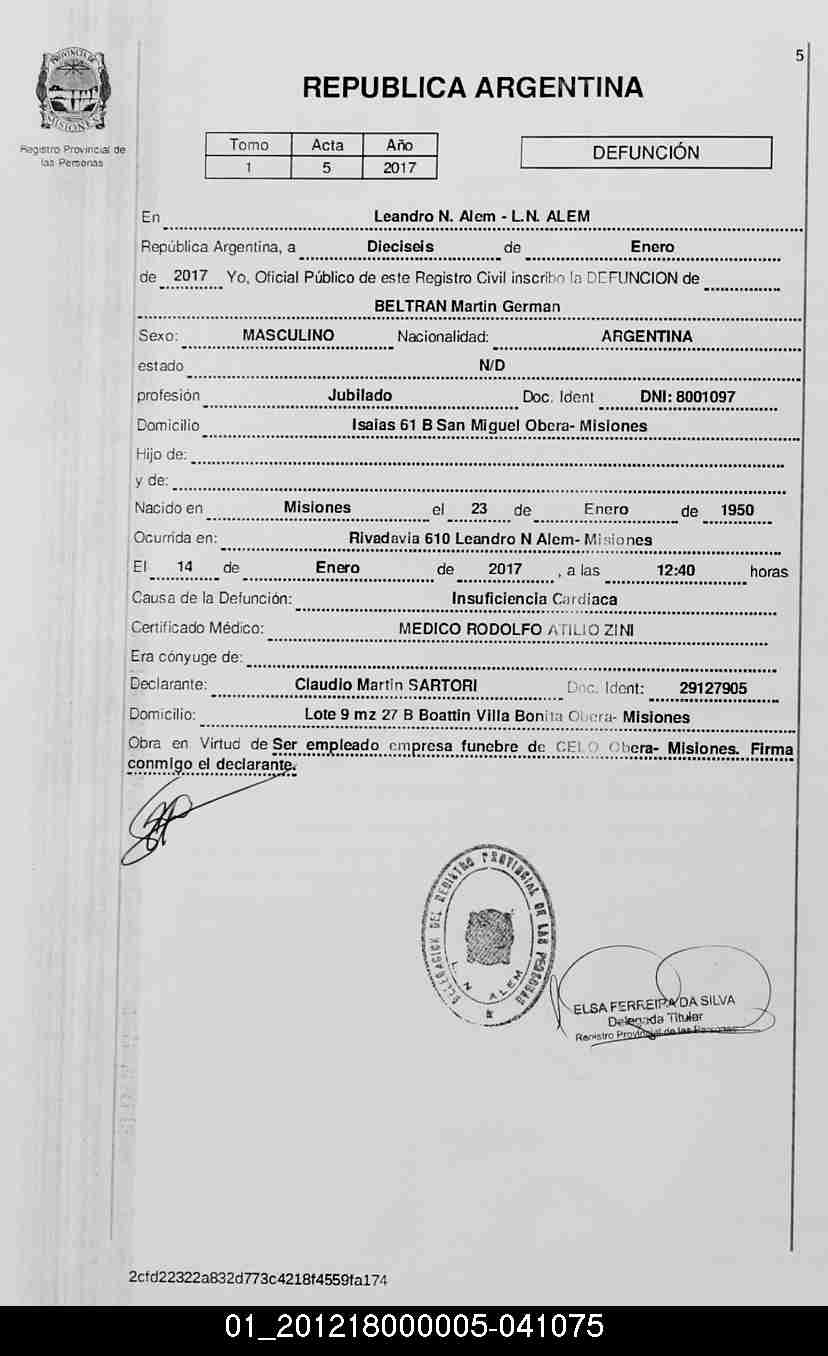 5
PROVINCIA DE
MISIONES
Registro Provincial de
las Personas
REPUBLICA ARGENTINA
Tomo Acta Año
1 5 2017
DEFUNCIÓN
En Leandro N. Alem - L.N. ALEM
República Argentina, a Dieciseis de Enero
de 2017 Yo, Oficial Público de este Registro Civil inscribo la DEFUNCION de
BELTRAN Martin German
Sexo: MASCULINO Nacionalidad: ARGENTINA
estado N/D
profesión Jubilado Doc. Ident DNI: 8001097
Domicilio Isaias 61 B San Miguel Obera- Misiones
Hijo de:
y de:
Nacido en Misiones el 23 de Enero de 1950
Ocurrida en: Rivadavia 610 Leandro N Alem- Misiones
El 14 de Enero de 2017 , a las 12:40 horas
Causa de la Defunción: Insuficiencia Cardiaca
Certificado Médico: MEDICO RODOLFO ATILIO ZINI
Era cónyuge de:
Declarante: Claudio Martin SARTORI Doc. Ident: 29127905
Domicilio: Lote 9 mz 27 B Boattin Villa Bonita Obera- Misiones
Obra en Virtud de Ser empleado empresa funebre de CELO Obera- Misiones. Firma
conmigo el declarante.
DELEGACION DEL REGISTRO PROVINCIAL DE LAS PERSONAS
L. N. ALEM
ELSA FERREIRA DA SILVA
Delegada Titular
Registro Provincial de las Personas
2cfd22322a832d773c4218f4559fa174
01_201218000005-041075